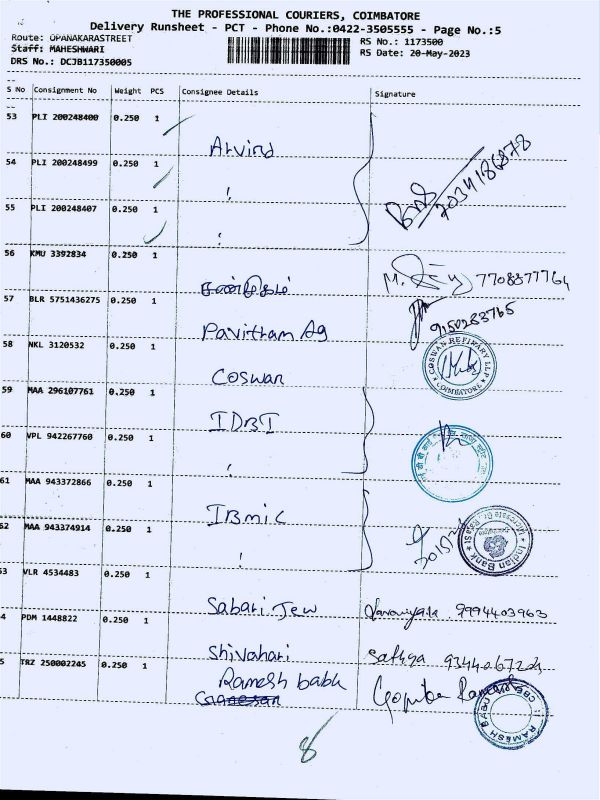 THE PROFESSIONAL COURIERS, COIMBATORE
Delivery Runsheet - PCT - Phone No.:0422-3505555 - Page No.:5
Route: OPANAKARASTREET
RS No.: 1173500
Staff: MAHESHWARI
RS Date: 20-May-2023
DRS No.: DCJB117350005
S No Consignment No Weight PCS Consignee Details Signature
53 PLI 200248400 0.250 1
Arvind
54 PLI 200248499 0.250 1
7034186878
55 PLI 200248407 0.250 1
56 KMU 3392834 0.250 1
7708377764
57 BLR 5751436275 0.250 1
9150283765
Pavithram Ag
58 NKL 3120532 0.250 1
Coswan
COSWAN REFINARY LLP
COIMBATORE
59 MAA 296107761 0.250 1
IDBI
60 VPL 942267760 0.250 1
61 MAA 943372866 0.250 1
IBMIC
62 MAA 943374914 0.250 1
Indian Bank
63 VLR 4534483 0.250 1
Sabari Jew 9994403963
4 PDM 1448822 0.250 1
Shivahari Sathya
5 TRZ 250002245 0.250 1
Ramesh babu
RAMESH BABU
8